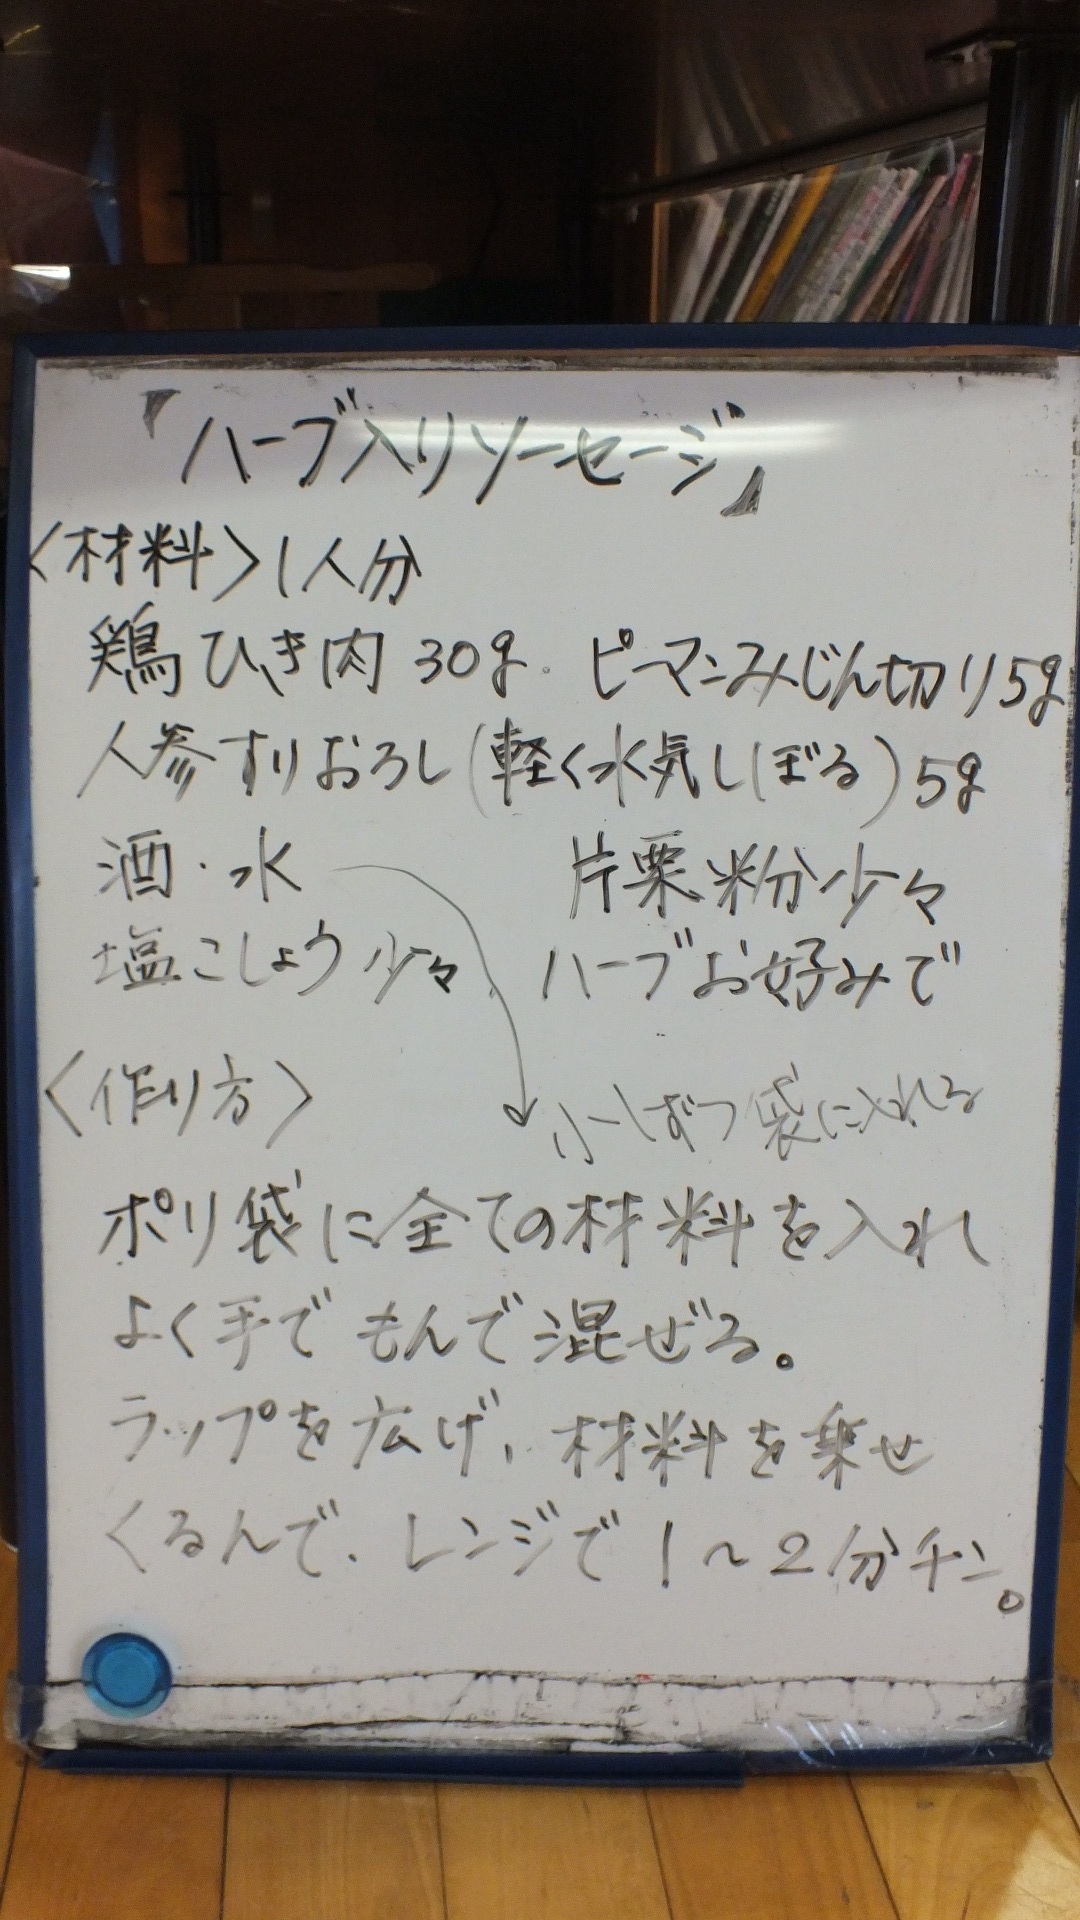 『ハーブ入りソーセージ』
〈材料〉1人分
鶏ひき肉 30g. ピーマンみじん切り5g
人参すりおろし(軽く水気しぼる)5g
酒・水 片栗粉少々
塩こしょう少々 ハーブお好みで
〈作り方〉 少しずつ袋に入れる
ポリ袋に全ての材料を入れ
よく手でもんで混ぜる。
ラップを広げ、材料を乗せ
くるんで、レンジで1〜2分チン。